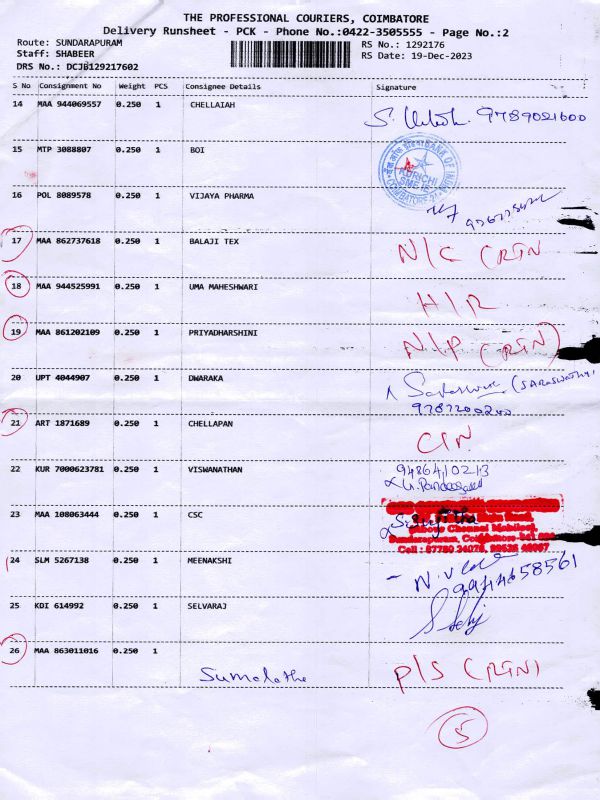 THE PROFESSIONAL COURIERS, COIMBATORE
Delivery Runsheet - PCK - Phone No.:0422-3505555 - Page No.:2
Route: SUNDARAPURAM RS No.: 1292176
Staff: SHABEER RS Date: 19-Dec-2023
DRS No.: DCJB129217602
S No Consignment No Weight PCS Consignee Details Signature
14 MAA 944069557 0.250 1 CHELLAIAH 9789021600
15 MTP 3088807 0.250 1 BOI
BANK OF INDIA
KURICHI
SME
COIMBATORE
16 POL 8089578 0.250 1 VIJAYA PHARMA
17 MAA 862737618 0.250 1 BALAJI TEX N/C (RTN
18 MAA 944525991 0.250 1 UMA MAHESHWARI H/R
19 MAA 861202109 0.250 1 PRIYADHARSHINI N/P (RTN)
20 UPT 4044907 0.250 1 DWARAKA (SARASWATHI)
9787200200
21 ART 1871689 0.250 1 CHELLAPAN
22 KUR 7000623781 0.250 1 VISWANATHAN 9486410213
23 MAA 108063444 0.250 1 CSC
Sundarapuram, Coimbatore-641
Cell :
24 SLM 5267138 0.250 1 MEENAKSHI 9944658561
25 KDI 614992 0.250 1 SELVARAJ
26 MAA 863011016 0.250 1
Sumalatha P/S (RTN)
5